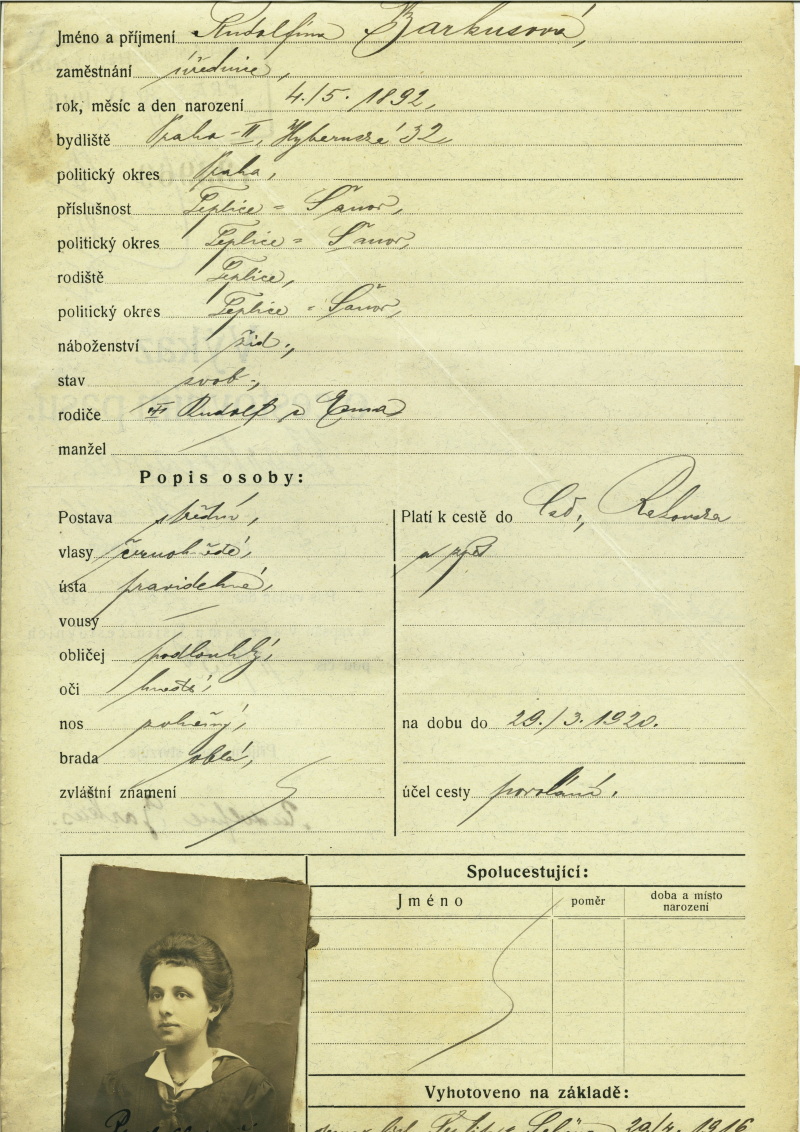 Jméno a příjmení Rudolfina Barkusová,
zaměstnání úřednice,
rok, měsíc a den narození 4./5. 1892,
bydliště Praha-II, Hybernská 32
politický okres Praha,
příslušnost Teplice = Šanov,
politický okres Teplice = Šanov,
rodiště Teplice,
politický okres Teplice = Šanov,
náboženství žid.,
stav svob.,
rodiče Rudolf a Ema
manžel
Popis osoby:
Postava střední,
vlasy černohnědé,
ústa pravidelné,
vousy —
obličej podlouhlý,
oči hnědé,
nos
brada oblá,
zvláštní znamení
Platí k cestě do Rakouska
a zpět
na dobu do 29./3. 1920.
účel cesty povolání.
Spolucestující:
Jméno poměr doba a místo narození
Vyhotoveno na základě:
1916